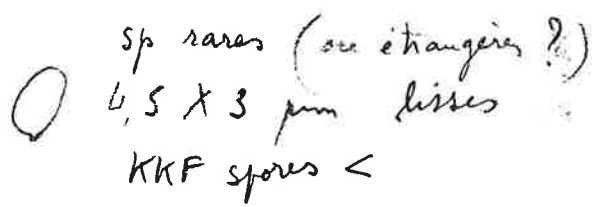 sp rares (ou étrangères ?)
4,5 X 3 µm lisses
KKF spores <